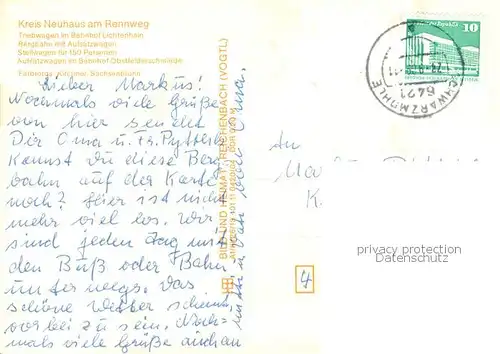 Kreis Neuhaus am Rennweg
Triebwagen im Bahnhof Lichtenhain
Bergbahn mit Aufsitzwagen
Stellwagen für 150 Personen
Aufsitzwagen im Bahnhof Obstfelderschmiede
Lieber Markus!
Nochmals viele Grüße
von hier sendet
Dir Oma u. Fr.
Kennst du diese Berg
bahn auf der Karte
noch? Hier ist nicht
mehr viel los. Wir
sind jeden Tag mit
den Buß oder Bahn
unterwegs. Das
schöne Wetter scheint
vorbei zu sein. Noch-
mals viele Grüße auch an
BILD UND HEIMAT REICHENBACH (VOGTL)
10
6421
SCHWARZMÜHLE
An
4
privacy protection
Datenschutz